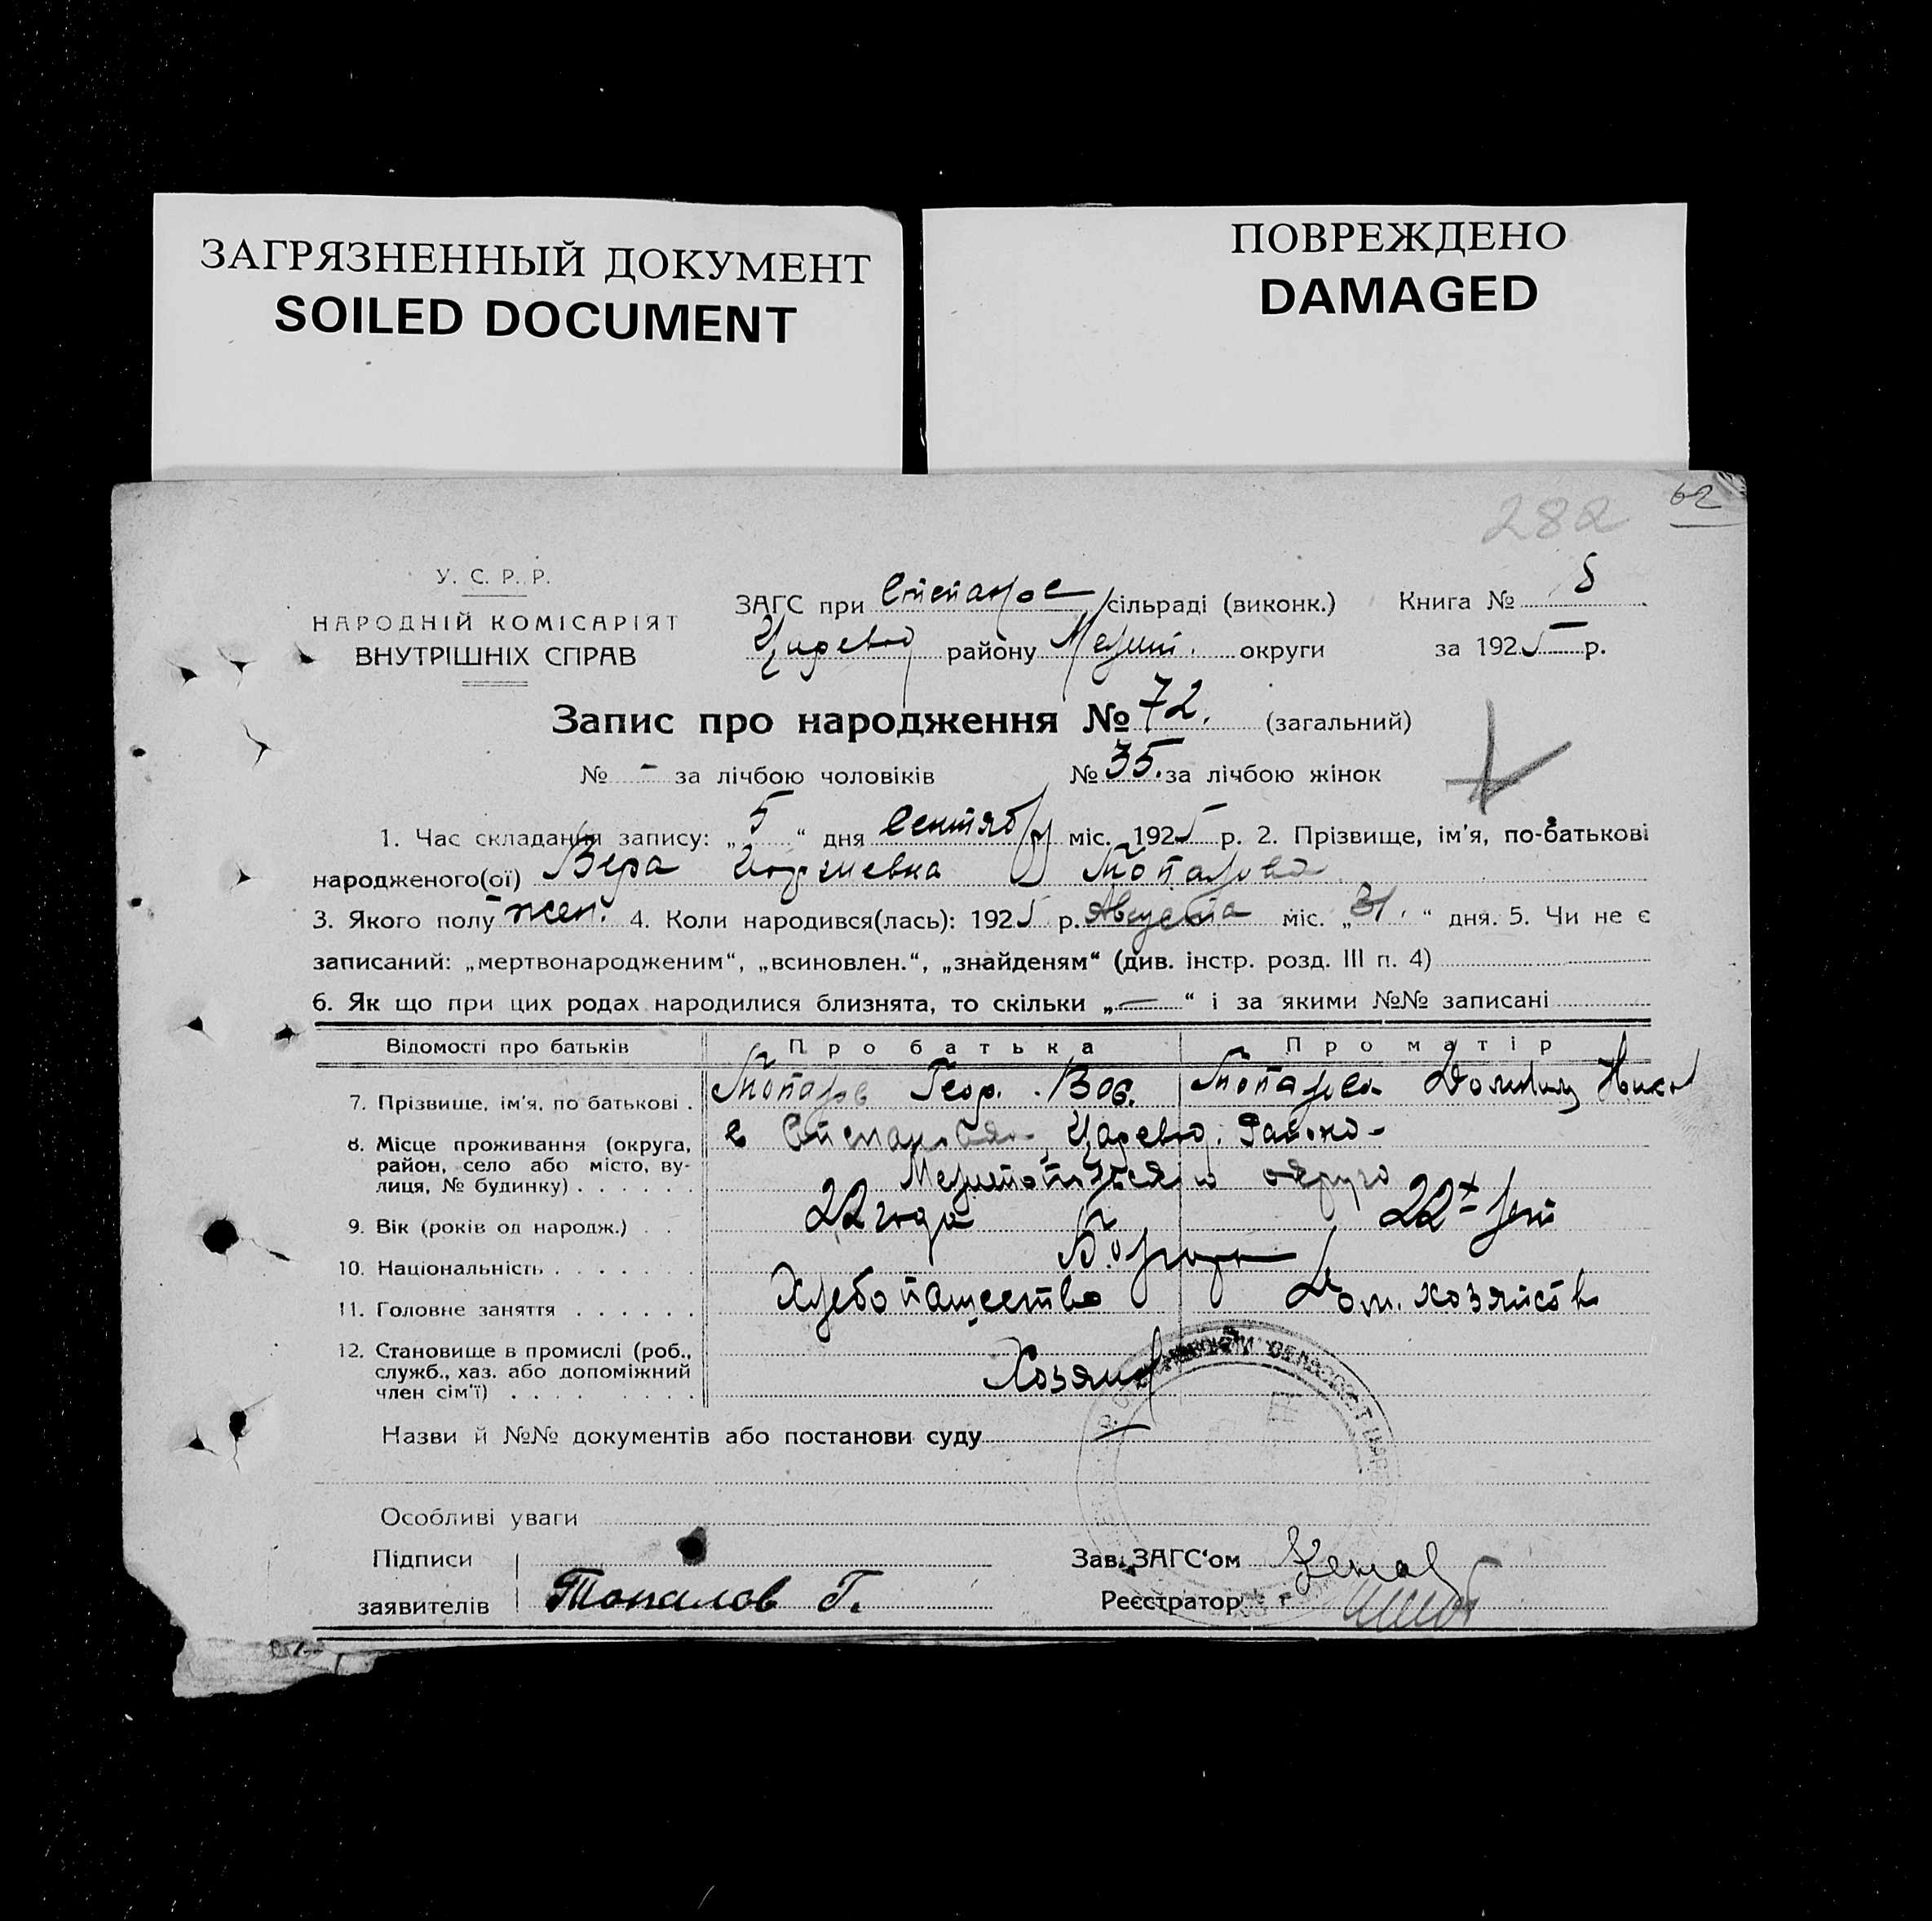 ЗАГРЯЗНЕННЫЙ ДОКУМЕНТ
SOILED DOCUMENT
ПОВРЕЖДЕНО
DAMAGED
282 62
У. С. Р. Р.
НАРОДНІЙ КОМІСАРІЯТ
ВНУТРІШНІХ СПРАВ
ЗАГС при сільраді (виконк.) Книга №
району Мелит. округи за 1925 р.
Запис про народження № 72. (загальний)
№ - за лічбою чоловіків № 35. за лічбою жінок
1. Час складання запису: „5“ дня Сентября міс. 1925 р. 2. Прізвище, ім'я, по-батькові
народженого(ої) Вера Топалова
3. Якого полу жен. 4. Коли народився(лась): 1925 р. Августа міс. „31.“ дня. 5. Чи не є
записаний: „мертвонародженим“, „всиновлен.“, „знайденям“ (див. інстр. розд. III п. 4)
6. Як що при цих родах народилися близнята, то скільки „—“ і за якими №№ записані
Відомості про батьків Про батька Про матір
7. Прізвище, ім'я, по батькові . Топалов Геор. Топалова
8. Місце проживання (округа, район, село або місто, вулиця, № будинку) . . . . . . Царевод. Района
Мелитопольского округа
9. Вік (років од народж.) . . 22 года 22х лет
10. Національність . . . . . . . Болгары
11. Головне заняття . . . . . . Хлебопашество Дом. хозяйство
12. Становище в промислі (роб., служб., хаз. або допоміжний член сім'ї) . . . . . . . . . Хозяин
Назви й №№ документів або постанови суду
Особливі уваги
Підписи Зав. ЗАГС'ом
заявителів Топалов Г. Реєстратор